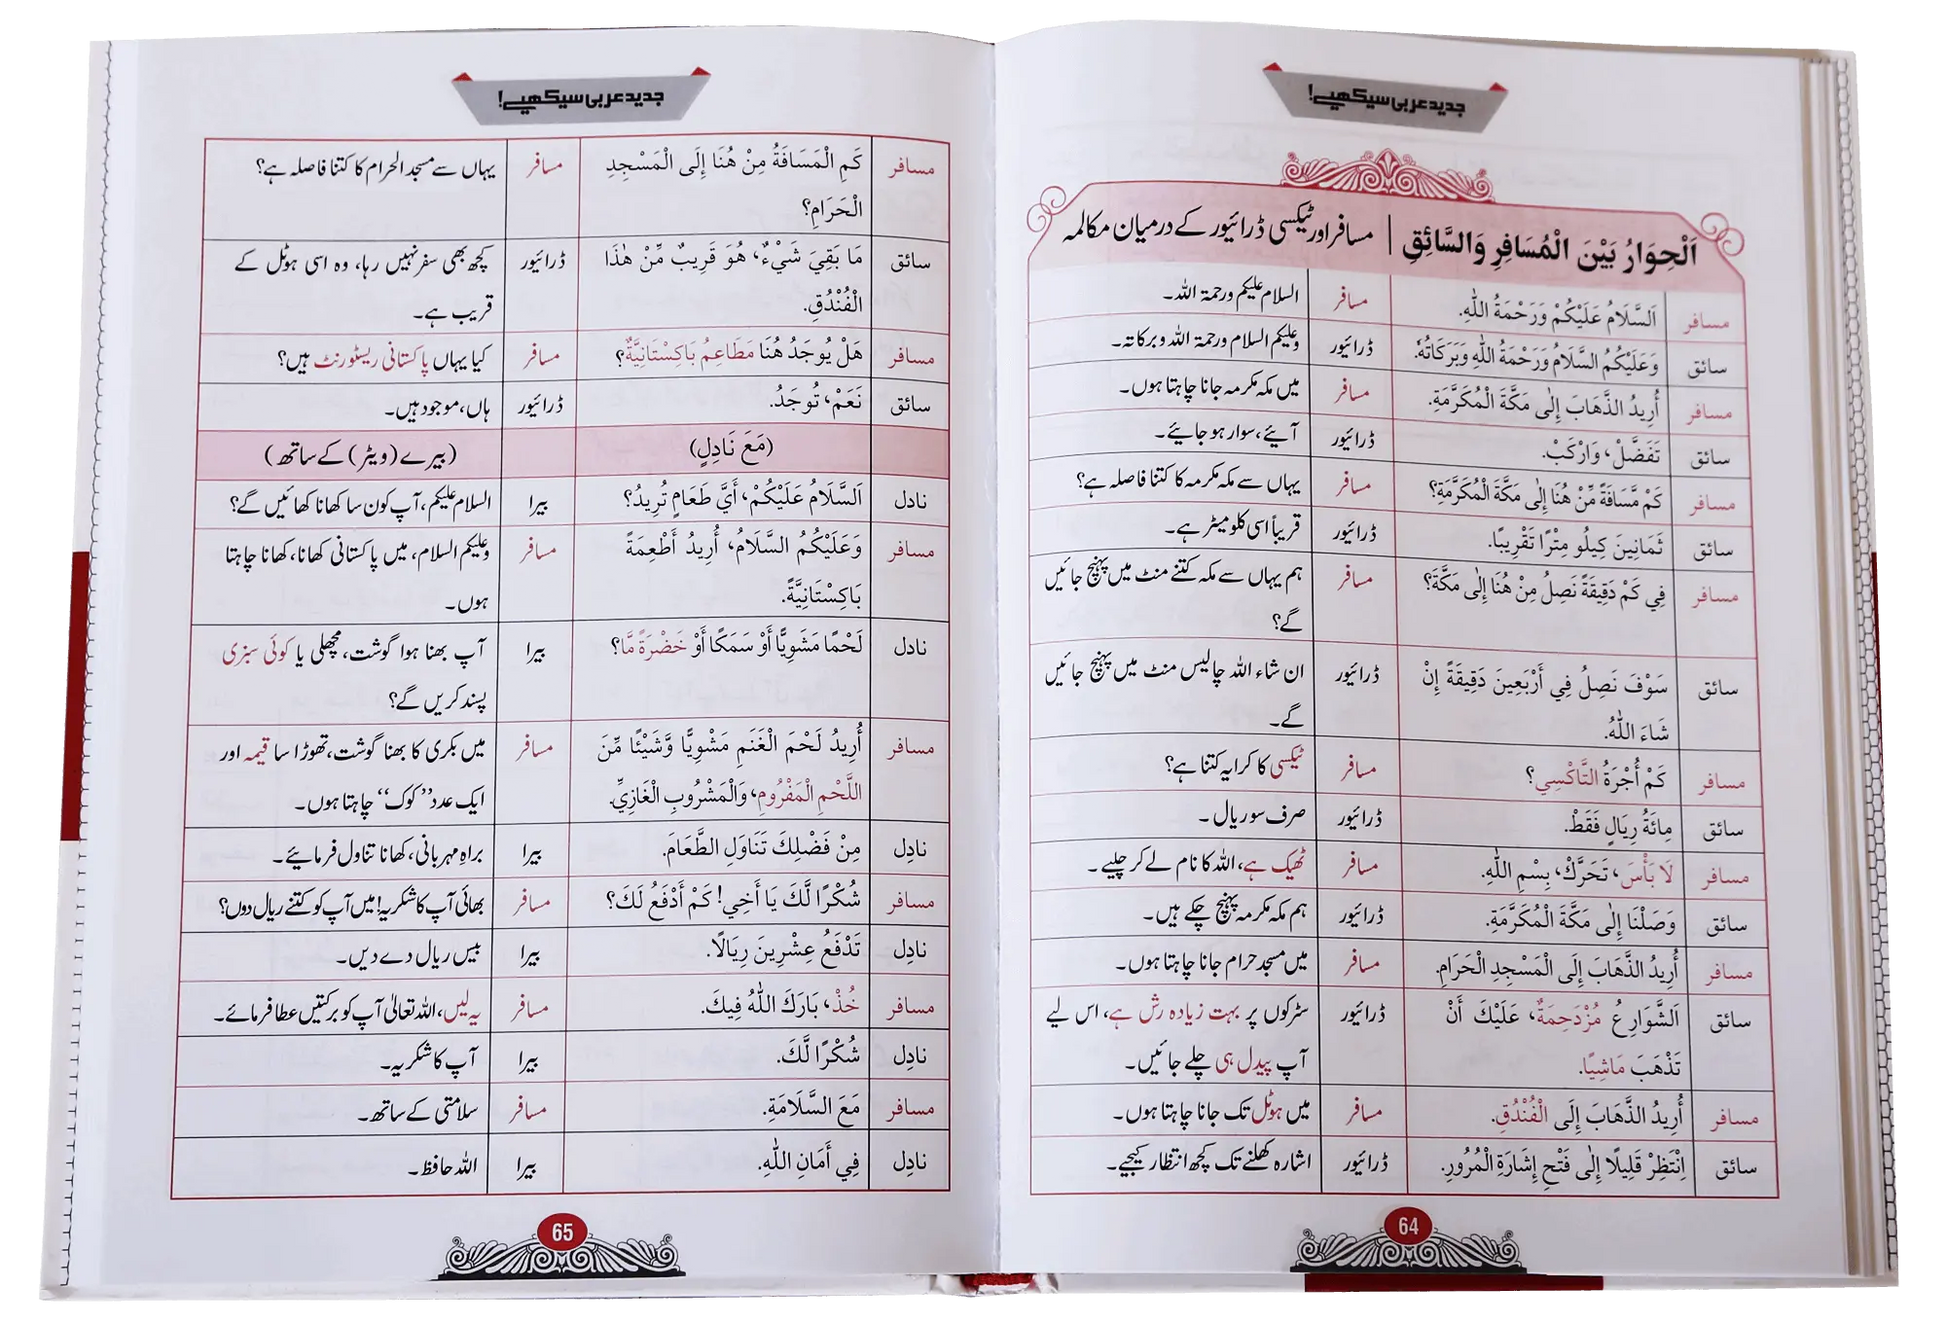 جدید عربی سیکھیے!
اَلْحِوَارُ بَيْنَ الْمُسَافِرِ وَالسَّائِقِ | مسافر اور ٹیکسی ڈرائیور کے درمیان مکالمہ
مسافر اَلسَّلَامُ عَلَيْكُمْ وَرَحْمَةُ اللّٰهِ. مسافر السلام علیکم ورحمۃ اللہ۔
سائق وَعَلَيْكُمُ السَّلَامُ وَرَحْمَةُ اللّٰهِ وَبَرَكَاتُهٗ. ڈرائیور وعلیکم السلام ورحمۃ اللہ وبرکاتہ۔
مسافر أُرِيدُ الذَّهَابَ إِلٰى مَكَّةَ الْمُكَرَّمَةِ. مسافر میں مکہ مکرمہ جانا چاہتا ہوں۔
سائق تَفَضَّلْ، وَارْكَبْ. ڈرائیور آیئے، سوار ہو جایئے۔
مسافر كَمْ مَّسَافَةً مِّنْ هُنَا إِلٰى مَكَّةَ الْمُكَرَّمَةِ؟ مسافر یہاں سے مکہ مکرمہ کا کتنا فاصلہ ہے؟
سائق ثَمَانِينَ كِيلُو مِتْرًا تَقْرِيبًا. ڈرائیور قریباً اسی کلومیٹر ہے۔
مسافر فِي كَمْ دَقِيقَةً نَصِلُ مِنْ هُنَا إِلٰى مَكَّةَ؟ مسافر ہم یہاں سے مکہ کتنے منٹ میں پہنچ جائیں
گے؟
سائق سَوْفَ نَصِلُ فِي أَرْبَعِينَ دَقِيقَةً إِنْ ڈرائیور ان شاء اللہ چالیس منٹ میں پہنچ جائیں
شَاءَ اللّٰهُ. گے۔
مسافر كَمْ أُجْرَةُ التَّاكْسِي؟ مسافر ٹیکسی کا کرایہ کتنا ہے؟
سائق مِائَةُ رِيَالٍ فَقَطْ. ڈرائیور صرف سو ریال۔
مسافر لَا بَأْسَ، تَحَرَّكْ، بِسْمِ اللّٰهِ. مسافر ٹھیک ہے، اللہ کا نام لے کر چلیے۔
سائق وَصَلْنَا إِلٰى مَكَّةَ الْمُكَرَّمَةِ. ڈرائیور ہم مکہ مکرمہ پہنچ چکے ہیں۔
مسافر أُرِيدُ الذَّهَابَ إِلَى الْمَسْجِدِ الْحَرَامِ. مسافر میں مسجد حرام جانا چاہتا ہوں۔
سائق اَلشَّوَارِعُ مُزْدَحِمَةٌ، عَلَيْكَ أَنْ ڈرائیور سڑکوں پر بہت زیادہ رش ہے، اس لیے
تَذْهَبَ مَاشِيًا. آپ پیدل ہی چلے جائیں۔
مسافر أُرِيدُ الذَّهَابَ إِلَى الْفُنْدُقِ. مسافر میں ہوٹل تک جانا چاہتا ہوں۔
سائق اِنْتَظِرْ قَلِيلًا إِلٰى فَتْحِ إِشَارَةِ الْمُرُورِ. ڈرائیور اشارہ کھلنے تک کچھ انتظار کیجیے۔
64
جدید عربی سیکھیے!
مسافر كَمِ الْمَسَافَةُ مِنْ هُنَا إِلَى الْمَسْجِدِ مسافر یہاں سے مسجد الحرام کا کتنا فاصلہ ہے؟
الْحَرَامِ؟
سائق مَا بَقِيَ شَيْءٌ، هُوَ قَرِيبٌ مِّنْ هٰذَا ڈرائیور کچھ بھی سفر نہیں رہا، وہ اسی ہوٹل کے
الْفُنْدُقِ. قریب ہے۔
مسافر هَلْ يُوجَدُ هُنَا مَطَاعِمُ بَاكِسْتَانِيَّةٌ؟ مسافر کیا یہاں پاکستانی ریسٹورنٹ ہیں؟
سائق نَعَمْ، تُوجَدُ. ڈرائیور ہاں، موجود ہیں۔
(مَعَ نَادِلٍ) (بیرے (ویٹر) کے ساتھ)
نادل اَلسَّلَامُ عَلَيْكُمْ، أَيَّ طَعَامٍ تُرِيدُ؟ بیرا السلام علیکم، آپ کون سا کھانا کھائیں گے؟
مسافر وَعَلَيْكُمُ السَّلَامُ، أُرِيدُ أَطْعِمَةً مسافر وعلیکم السلام، میں پاکستانی کھانا، کھانا چاہتا
بَاكِسْتَانِيَّةً. ہوں۔
نادل لَحْمًا مَشَوِيًّا أَوْ سَمَكًا أَوْ خَضْرَةً مَّا؟ بیرا آپ بھنا ہوا گوشت، مچھلی یا کوئی سبزی
پسند کریں گے؟
مسافر أُرِيدُ لَحْمَ الْغَنَمِ مَشْوِيًّا وَّشَيْئًا مِّنَ مسافر میں بکری کا بھنا گوشت، تھوڑا سا قیمہ اور
اللَّحْمِ الْمَفْرُومِ، وَالْمَشْرُوبِ الْغَازِيِّ. ایک عدد ”کوک“ چاہتا ہوں۔
نادِل مِنْ فَضْلِكَ تَنَاوَلِ الطَّعَامَ. بیرا براہ مہربانی، کھانا تناول فرمایئے۔
مسافر شُكْرًا لَّكَ يَا أَخِي! كَمْ أَدْفَعُ لَكَ؟ مسافر بھائی آپ کا شکریہ! میں آپ کو کتنے ریال دوں؟
نادِل تَدْفَعُ عِشْرِينَ رِيَالًا. بیرا بیس ریال دے دیں۔
مسافر خُذْ، بَارَكَ اللّٰهُ فِيكَ. مسافر یہ لیں، اللہ تعالیٰ آپ کو برکتیں عطا فرمائے۔
نادِل شُكْرًا لَّكَ. بیرا آپ کا شکریہ۔
مسافر مَعَ السَّلَامَةِ. مسافر سلامتی کے ساتھ۔
نادِل فِي أَمَانِ اللّٰهِ. بیرا اللہ حافظ۔
65